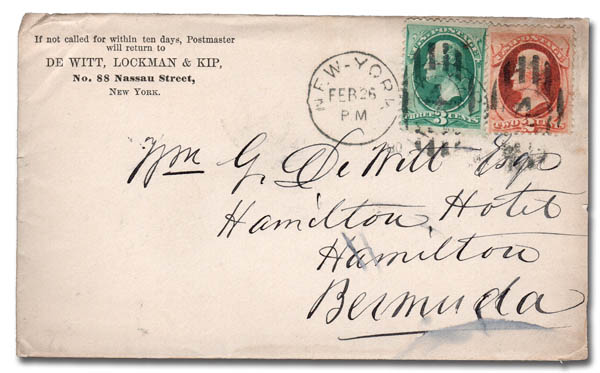 If not called for within ten days, Postmaster
will return to
DE WITT, LOCKMAN & KIP,
No. 88 Nassau Street,
NEW YORK.
NEW-YORK
FEB 26
PM
U.S. POSTAGE
THREE 3 CENTS
U.S. POSTAGE
TWO 2 CENTS
Wm G. DeWitt Esqr
Hamilton Hotel
Hamilton
Bermuda